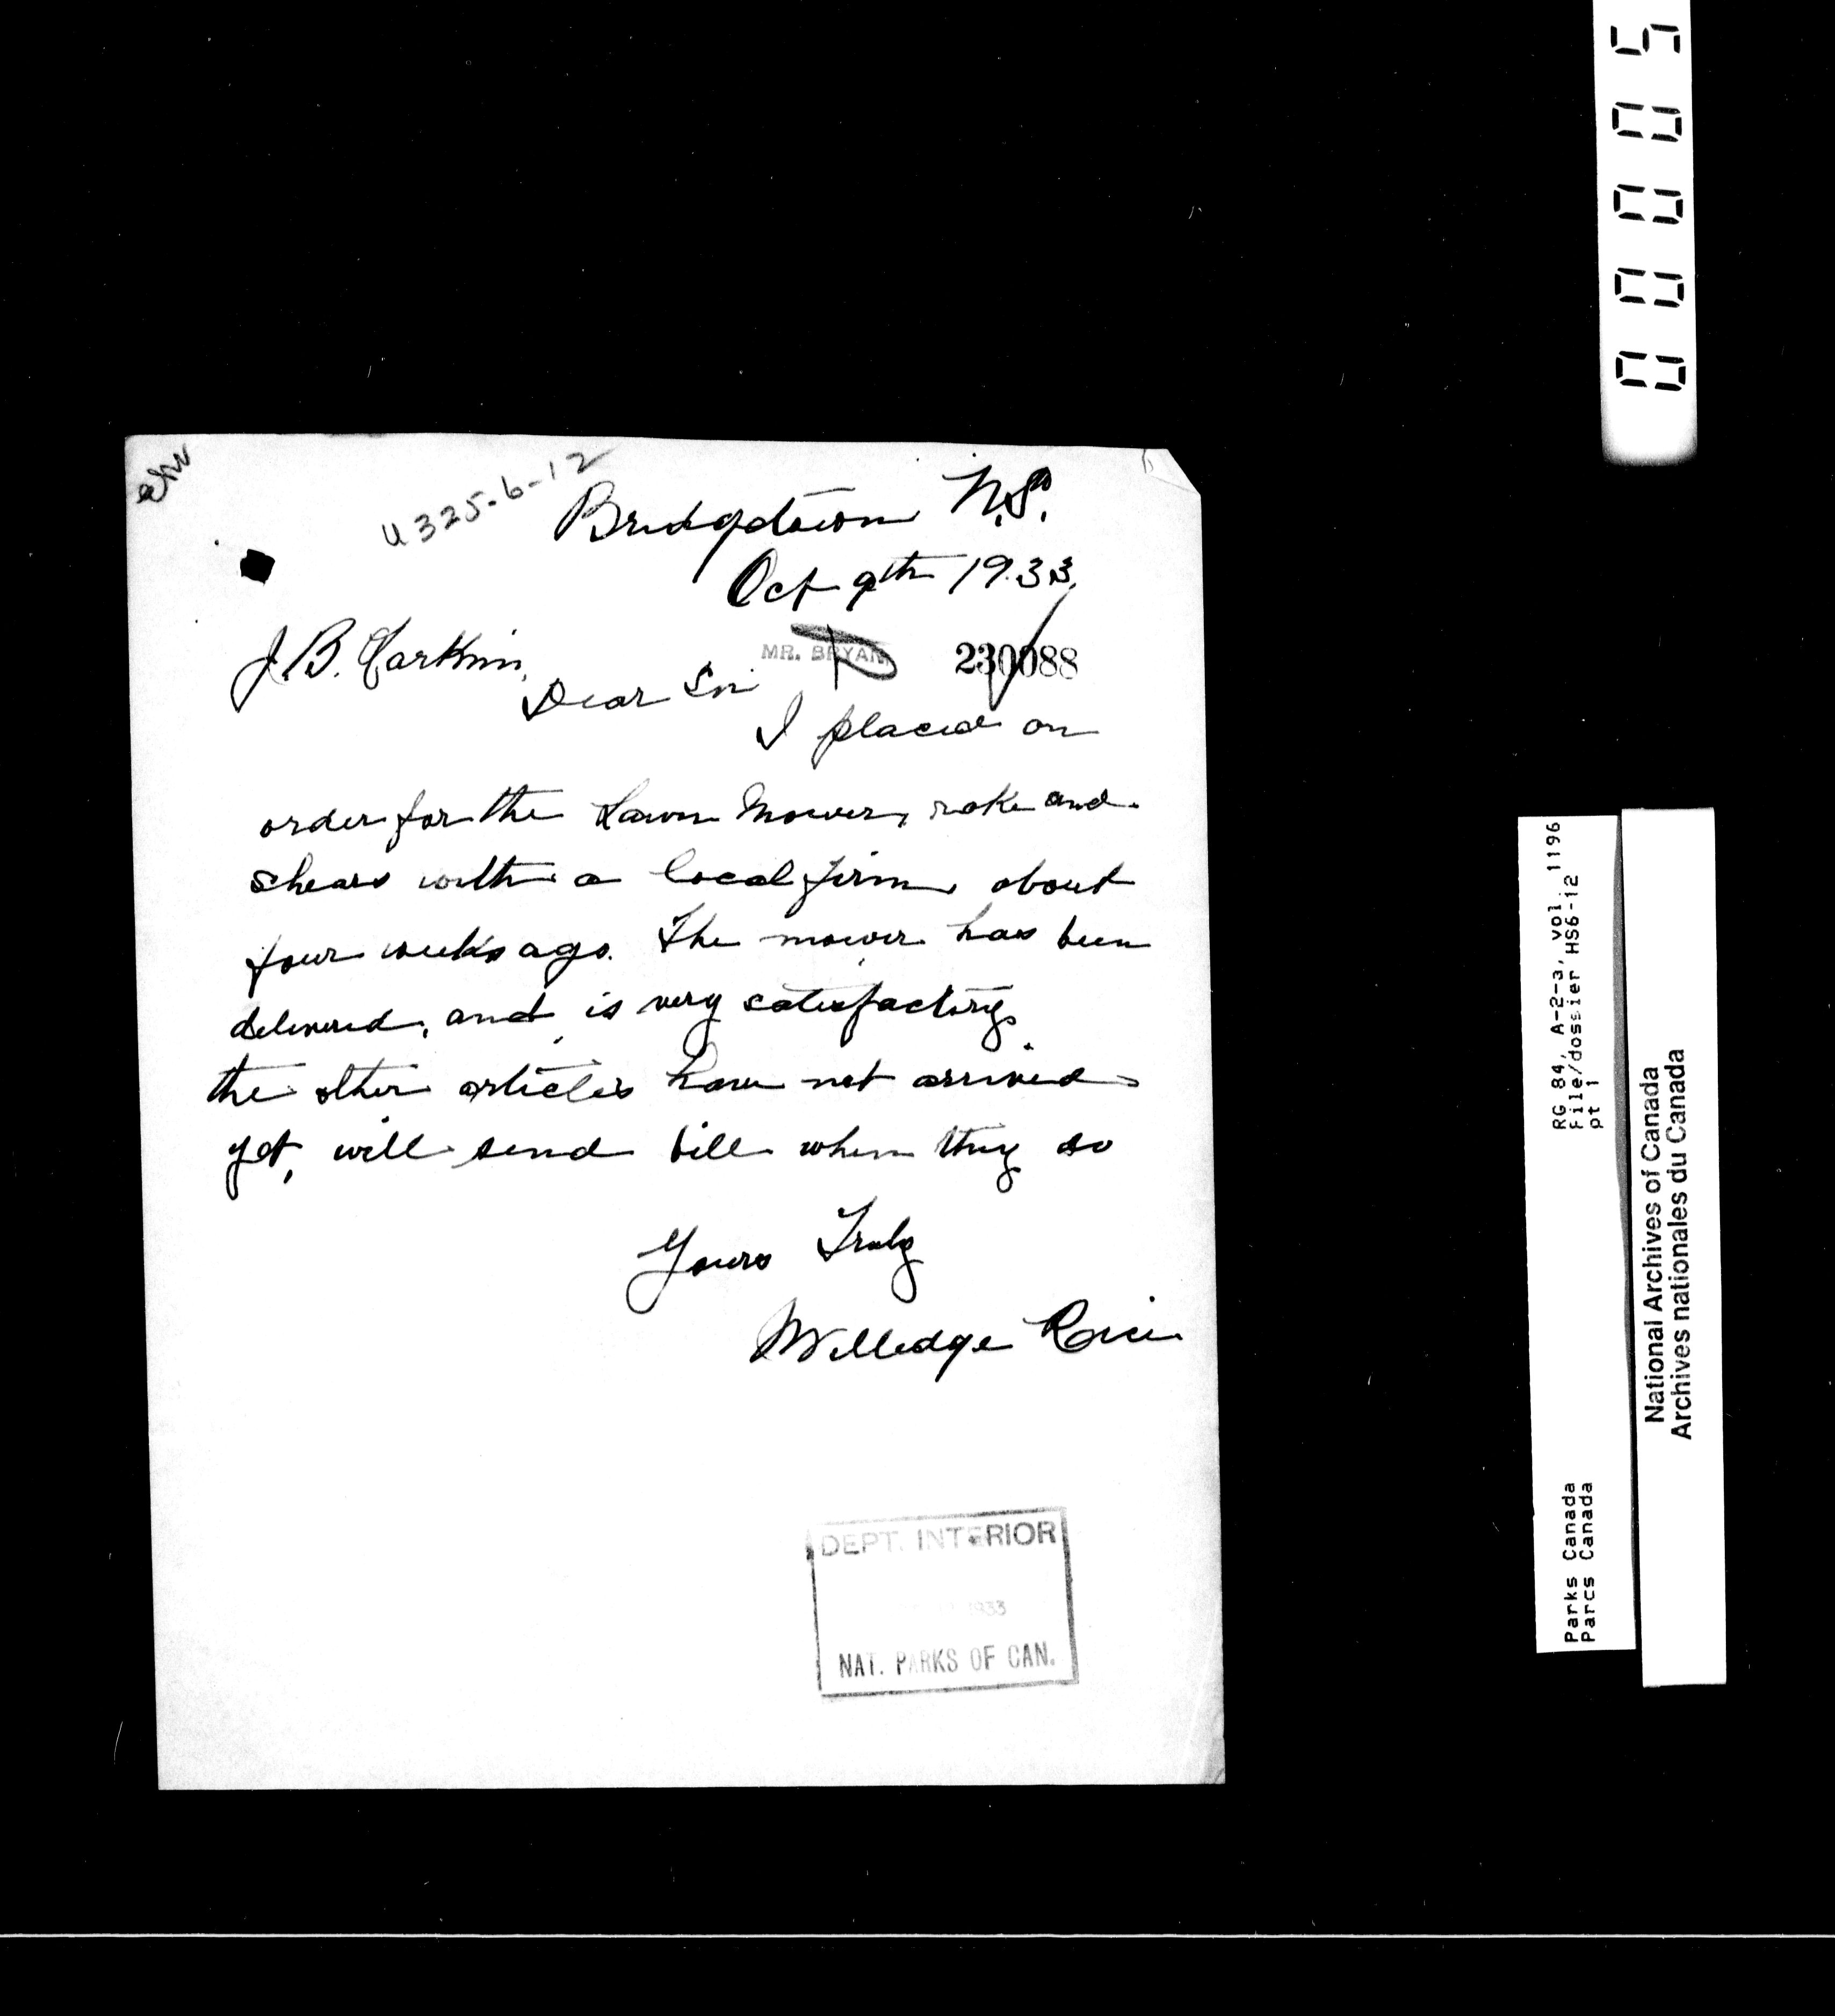 00005
U325-6-12
Bridgetown N.S.
Oct 9th 1933.
MR. BRYANT
230088
J.B. Harkin,
Dear Sir
I placed an
order for the Lawn Mower, rake and
shears with a local firm about
four weeks ago. The mower has been
delivered, and is very satisfactory.
the other articles have not arrived
yet, will send bill when they do
Yours Truly
Willedge Rice
DEPT. INTERIOR
1933
NAT. PARKS OF CAN.
RG 84, A-2-3, vol. 1196
File/dossier HS6-12
pt 1
Parks Canada
Parcs Canada
National Archives of Canada
Archives nationales du Canada